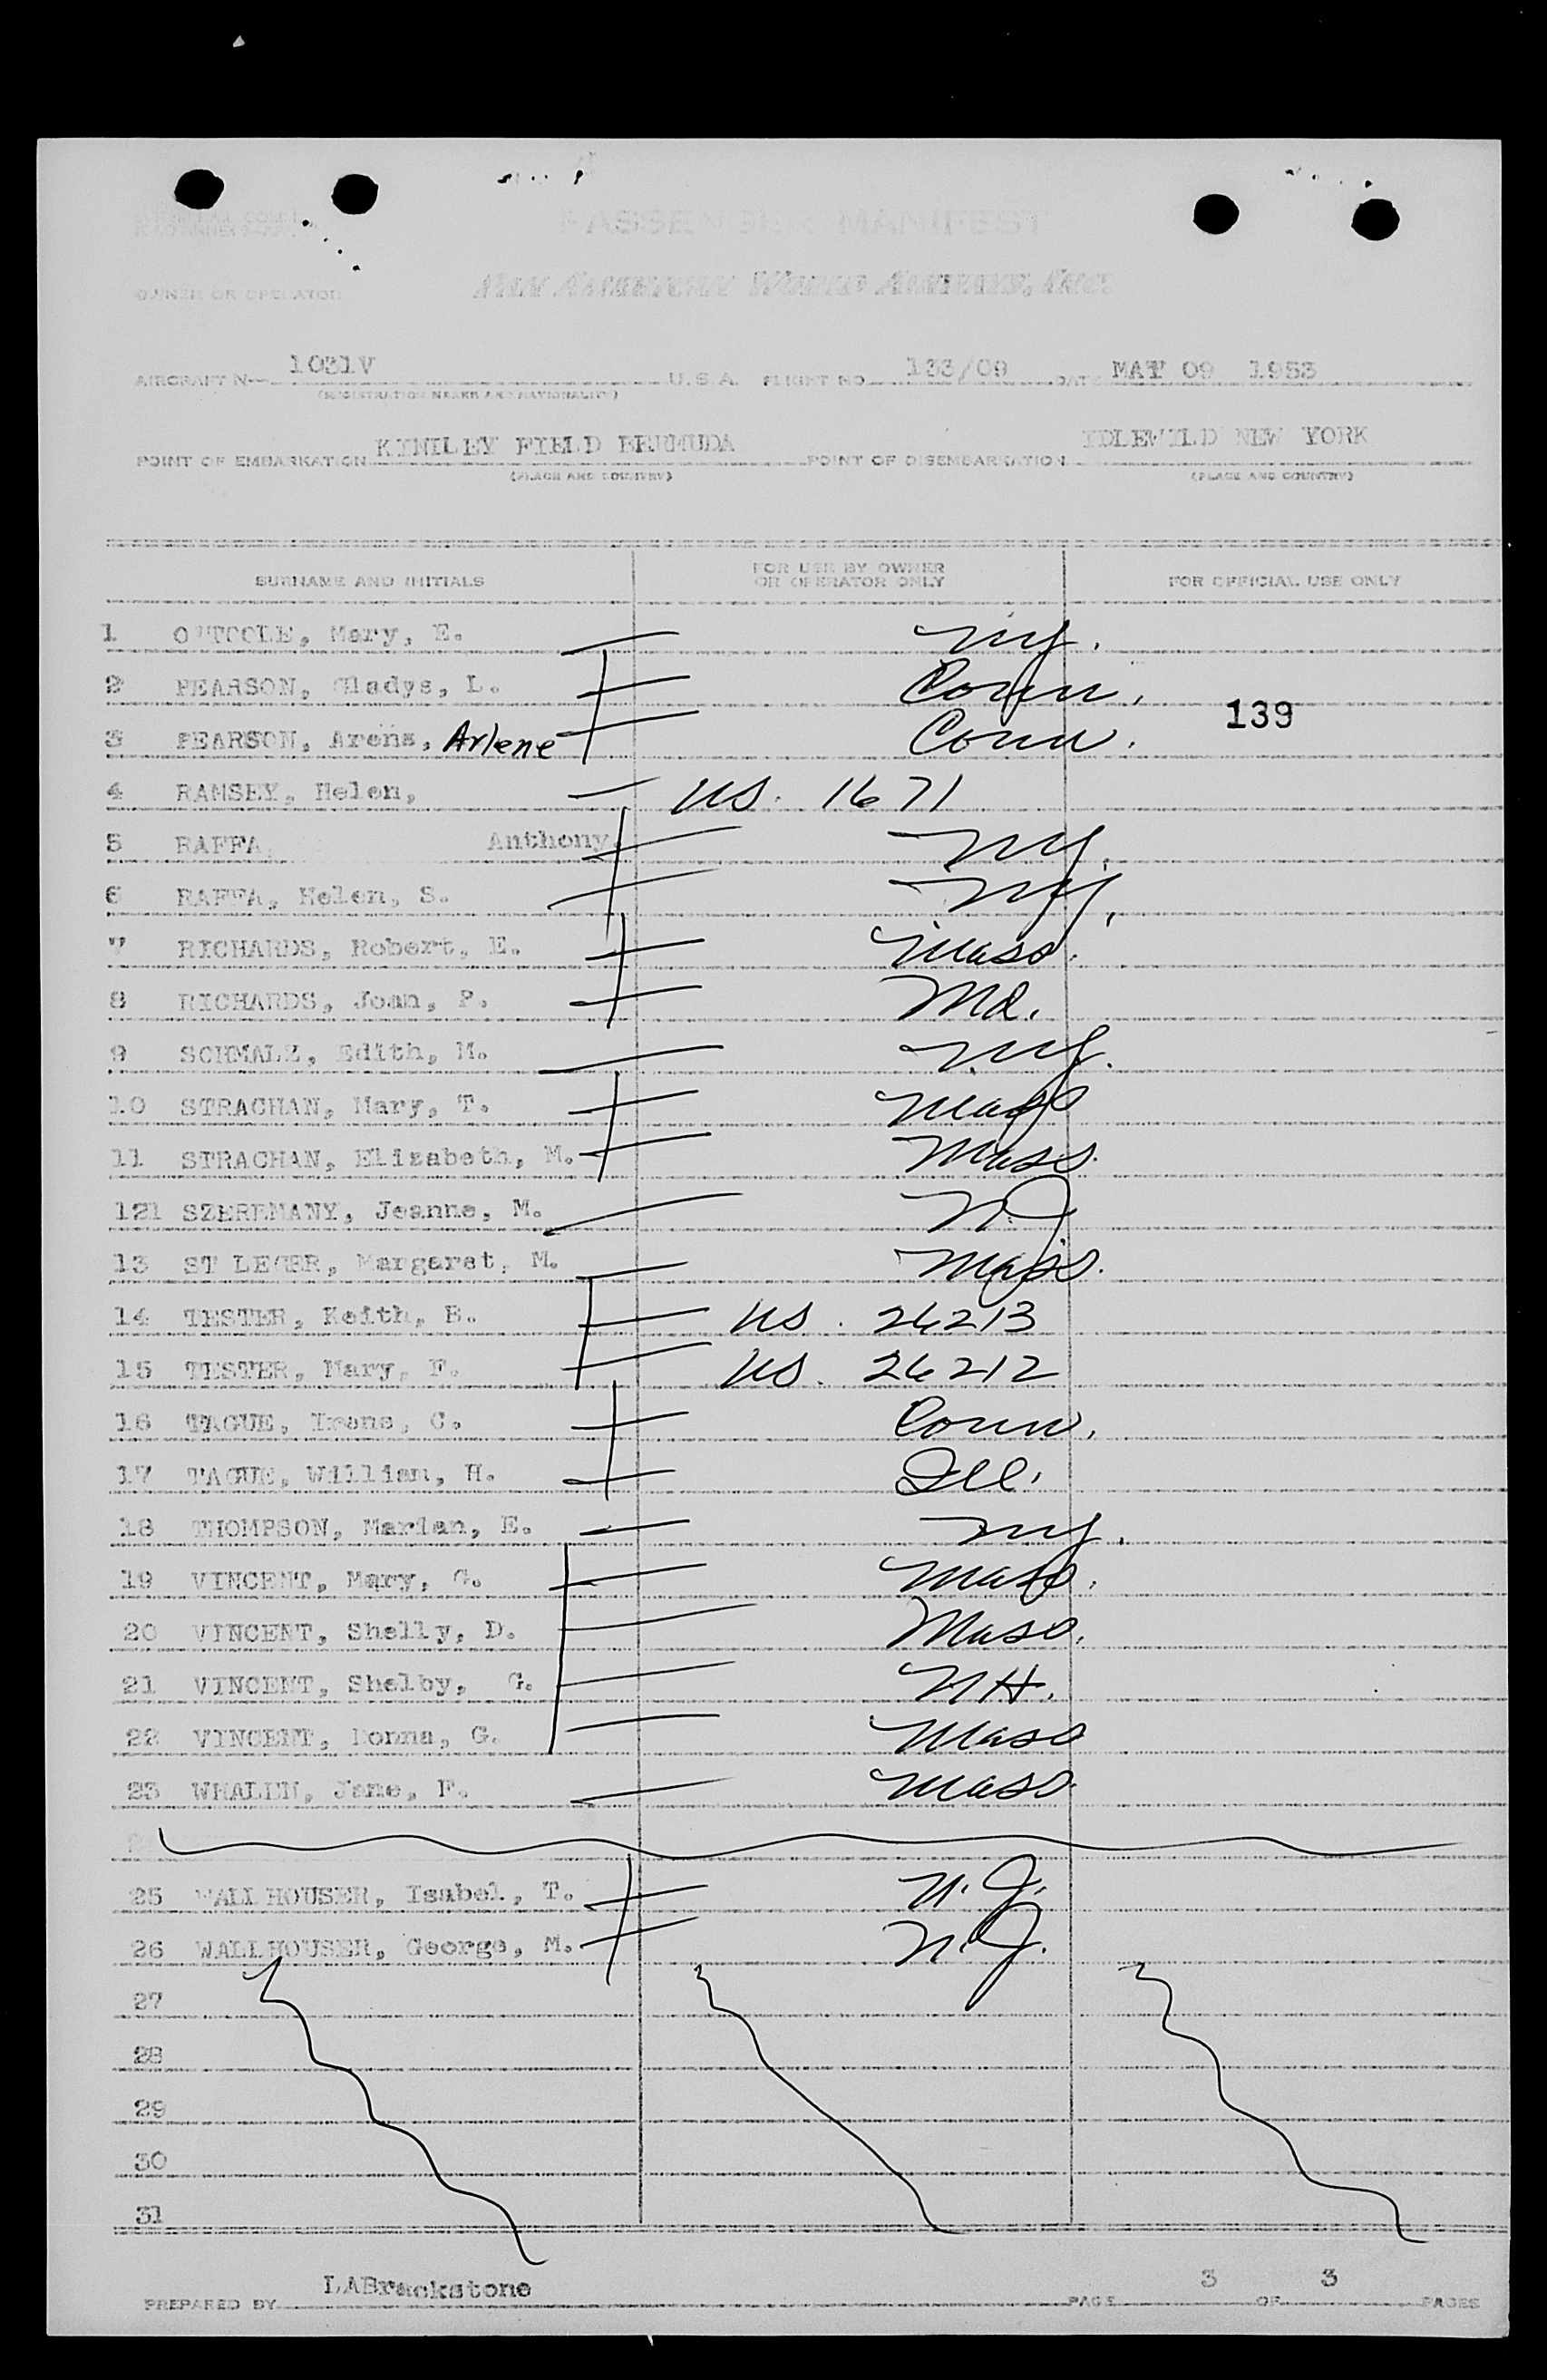 PASSENGER MANIFEST
OWNER OR OPERATOR PAN AMERICAN WORLD AIRWAYS, INC.
AIRCRAFT N- 1031V U.S.A. FLIGHT NO 133/09 DATE MAY 09 1953
(REGISTRATION MARKS AND NATIONALITY)
POINT OF EMBARKATION KINILEY FIELD BERMUDA POINT OF DISEMBARKATION IDLEWILD NEW YORK
(PLACE AND COUNTRY) (PLACE AND COUNTRY)
SURNAME AND INITIALS FOR USE BY OWNER OR OPERATOR ONLY FOR OFFICIAL USE ONLY
1 O'TOOLE, Mary, E. NY.
2 PEARSON, Gladys, L. Conn.
139
3 PEARSON, Arens, Arlene Conn.
4 RAMSEY, Helen, US. 1671
5 RAFFA, Anthony NY.
6 RAFFA, Helen, S. NY.
7 RICHARDS, Robert, E. Mass.
8 RICHARDS, Joan, P. Md.
9 SCHMALZ, Edith, M. NY.
10 STRACHAN, Mary, T. Mass
11 STRACHAN, Elizabeth, M. Mass.
121 SZEREMANY, Jeanne, M. NJ
13 ST LEGER, Margaret, M. Mass.
14 TESTER, Keith, B. US. 26213
15 TESTER, Mary, F. US. 26212
16 TAGUE, Irene, C. Conn.
17 TAGUE, William, H. Ill.
18 THOMPSON, Marian, E. NY.
19 VINCENT, Mary, G. Mass.
20 VINCENT, Shelly, D. Mass.
21 VINCENT, Shelby, G. NH.
22 VINCENT, Donna, G. Mass
23 WHALEN, Jane, F. Mass.
25 WALLHOUSER, Isabel, T. N.J.
26 WALLHOUSER, George, M. N.J.
27
28
29
30
31
PREPARED BY LABrackstone PAGE 3 OF 3 PAGES